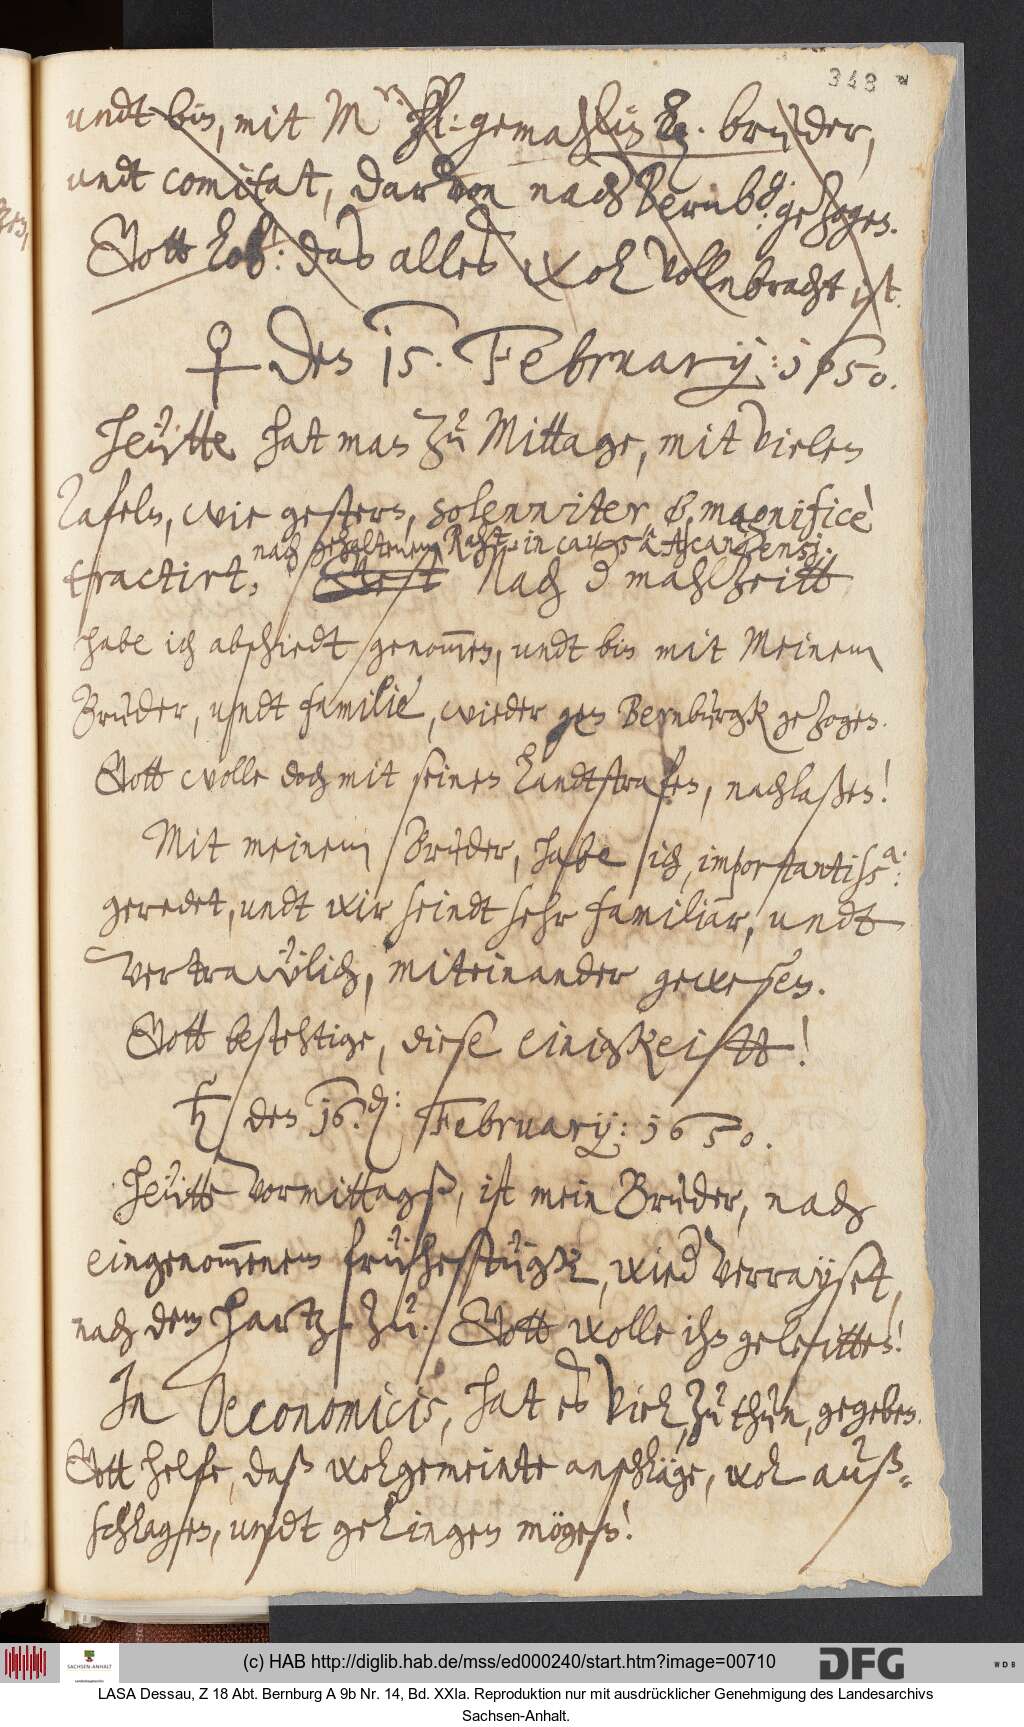 348
undt bin, mit Mr: hl: gemahlin, E. bruder,
undt comitat, darvon nach Bernbg: gezogen.
Gott lob: das alles wol vollnbracht ist.
♀ den 15. February: 1650.
Heütte hat man zu Mittage, mit vielen
Tafeln, wie gestern, solenniter, & magnificè
nach gehaltenem Raht, in causa Ascaniensi:
tractirt, Nach d mahlzeitt
habe ich abschiedt genom̅en, undt bin mit Meinem
Bruder, undt familie, wieder gen Bernburgk gezogen.
Gott wolle doch mit seinen Landtstrafen, nachlaßen!
Mit meinem Bruder, habe ich, importantissa:
geredet, undt wir seindt sehr familiar, undt
vertrawlich, miteinander gewesen.
Gott bestehtige, diese einigkeitt!
♄ den 16. d: February: 1650.
Heütte vormittagß, ist mein Bruder, nach
eingenom̅enem frühestügk, wied verrayset,
nach dem Hartz zu. Gott wolle ihn geleitten!
In Oeconomicis, hat es viel, zu thun, gegeben.
Gott helfe, daß wolgemeinte anschläge, wol auß-
schlagen, undt gelingen mögen!
(c) HAB http://diglib.hab.de/mss/ed000240/start.htm?image=00710
SACHSEN-ANHALT
DFG
WDB
LASA Dessau, Z 18 Abt. Bernburg A 9b Nr. 14, Bd. XXIa. Reproduktion nur mit ausdrücklicher Genehmigung des Landesarchivs
Sachsen-Anhalt.